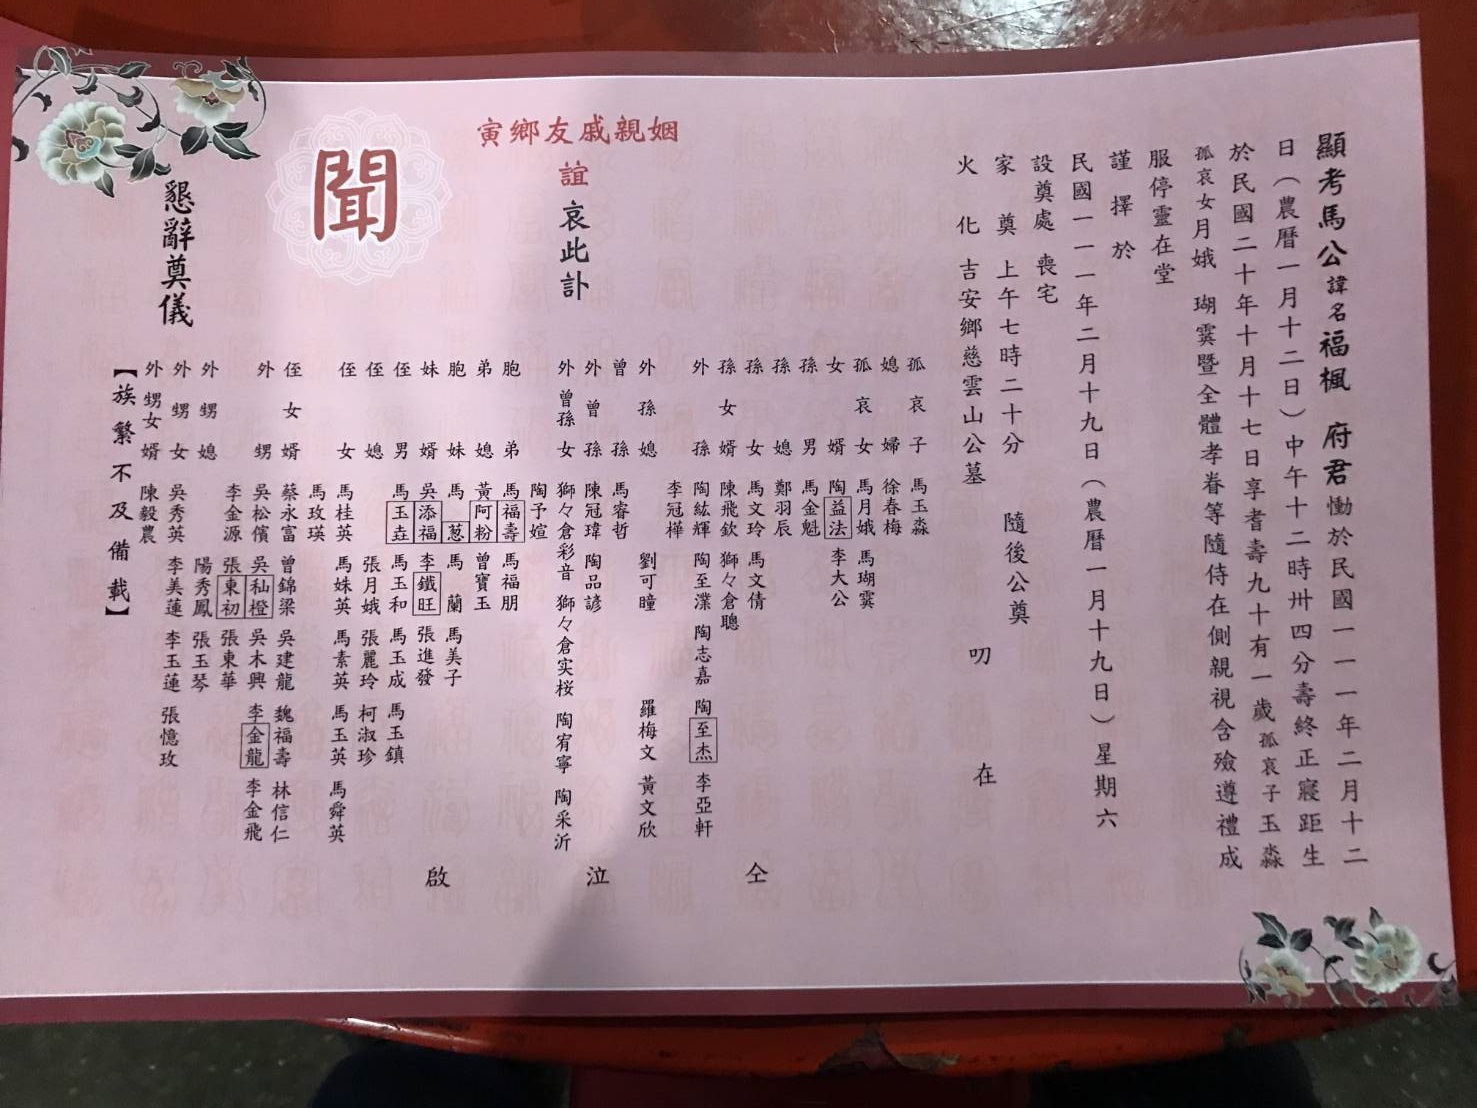 顯考馬公諱名福楓 府君慟於民國一一一年二月十二
日（農曆一月十二日）中午十二時卅四分壽終正寢距生
於民國二十年十月十七日享耆壽九十有一歲孤哀子玉淼
孤哀女月娥 瑚霙暨全體孝眷等隨侍在側親視含殮遵禮成
服停靈在堂
謹擇於
民國一一一年二月十九日（農曆一月十九日）星期六
設奠處 喪宅
家奠 上午七時二十分 隨後公奠
火化 吉安鄉慈雲山公墓
叨
在
姻親戚友鄉寅
誼 哀此訃
聞
懇辭奠儀
孤哀子 馬玉淼
媳婦 徐春梅
孤哀女 馬月娥 馬瑚霙
女婿 陶益法 李大公
孫男 馬金魁
孫媳 鄭羽辰
孫女 馬文玲 馬文倩
孫女婿 陳飛欽 獅々倉聰
外孫 陶紘輝 陶至澲 陶志嘉 陶至杰 李亞軒
李冠樺
外孫媳 劉可曈 羅梅文 黃文欣
曾孫 馬睿哲
外曾孫 陳冠瑋 陶品諺
外曾孫女 獅々倉彩音 獅々倉实桜 陶宥寧 陶采沂
陶予媗
胞弟 馬福壽 馬福朋
弟媳 黃阿粉 曾寶玉
胞妹 馬蔥 馬蘭 馬美子
妹婿 吳添福 李鐵旺 張進發
侄男 馬玉垚 馬玉和 馬玉成 馬玉鎮
侄媳 張月娥 張麗玲 柯淑珍
侄女 馬桂英 馬妹英 馬素英 馬玉英 馬舜英
馬玫瑛
侄女婿 蔡永富 曾錦梁 吳建龍 魏福壽 林信仁
外甥 吳松儐 吳秈橙 吳木興 李金龍 李金飛
李金源 張東初 張東華
外甥媳 陽秀鳳 張玉琴
外甥女 吳秀英 李美蓮 李玉蓮 張憶玫
外甥女婿 陳毅農
【族繁不及備載】
仝
泣
啟